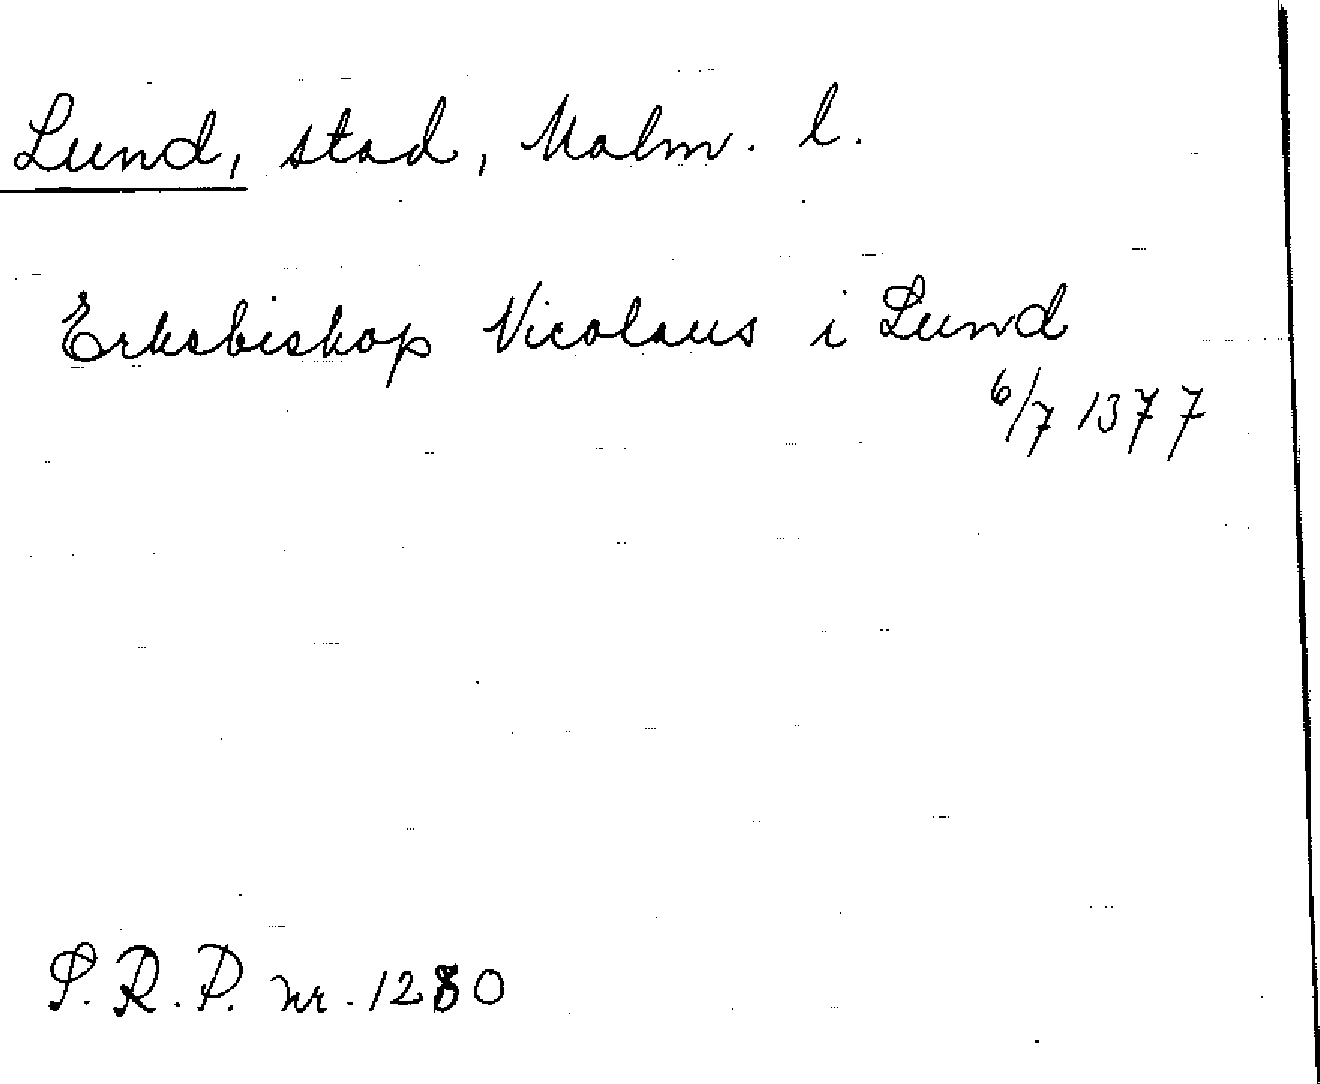 Lund, stad, Malm. l.
Erkebiskop Nicolaus i Lund
6/7 1377
S.R.P. nr. 1280